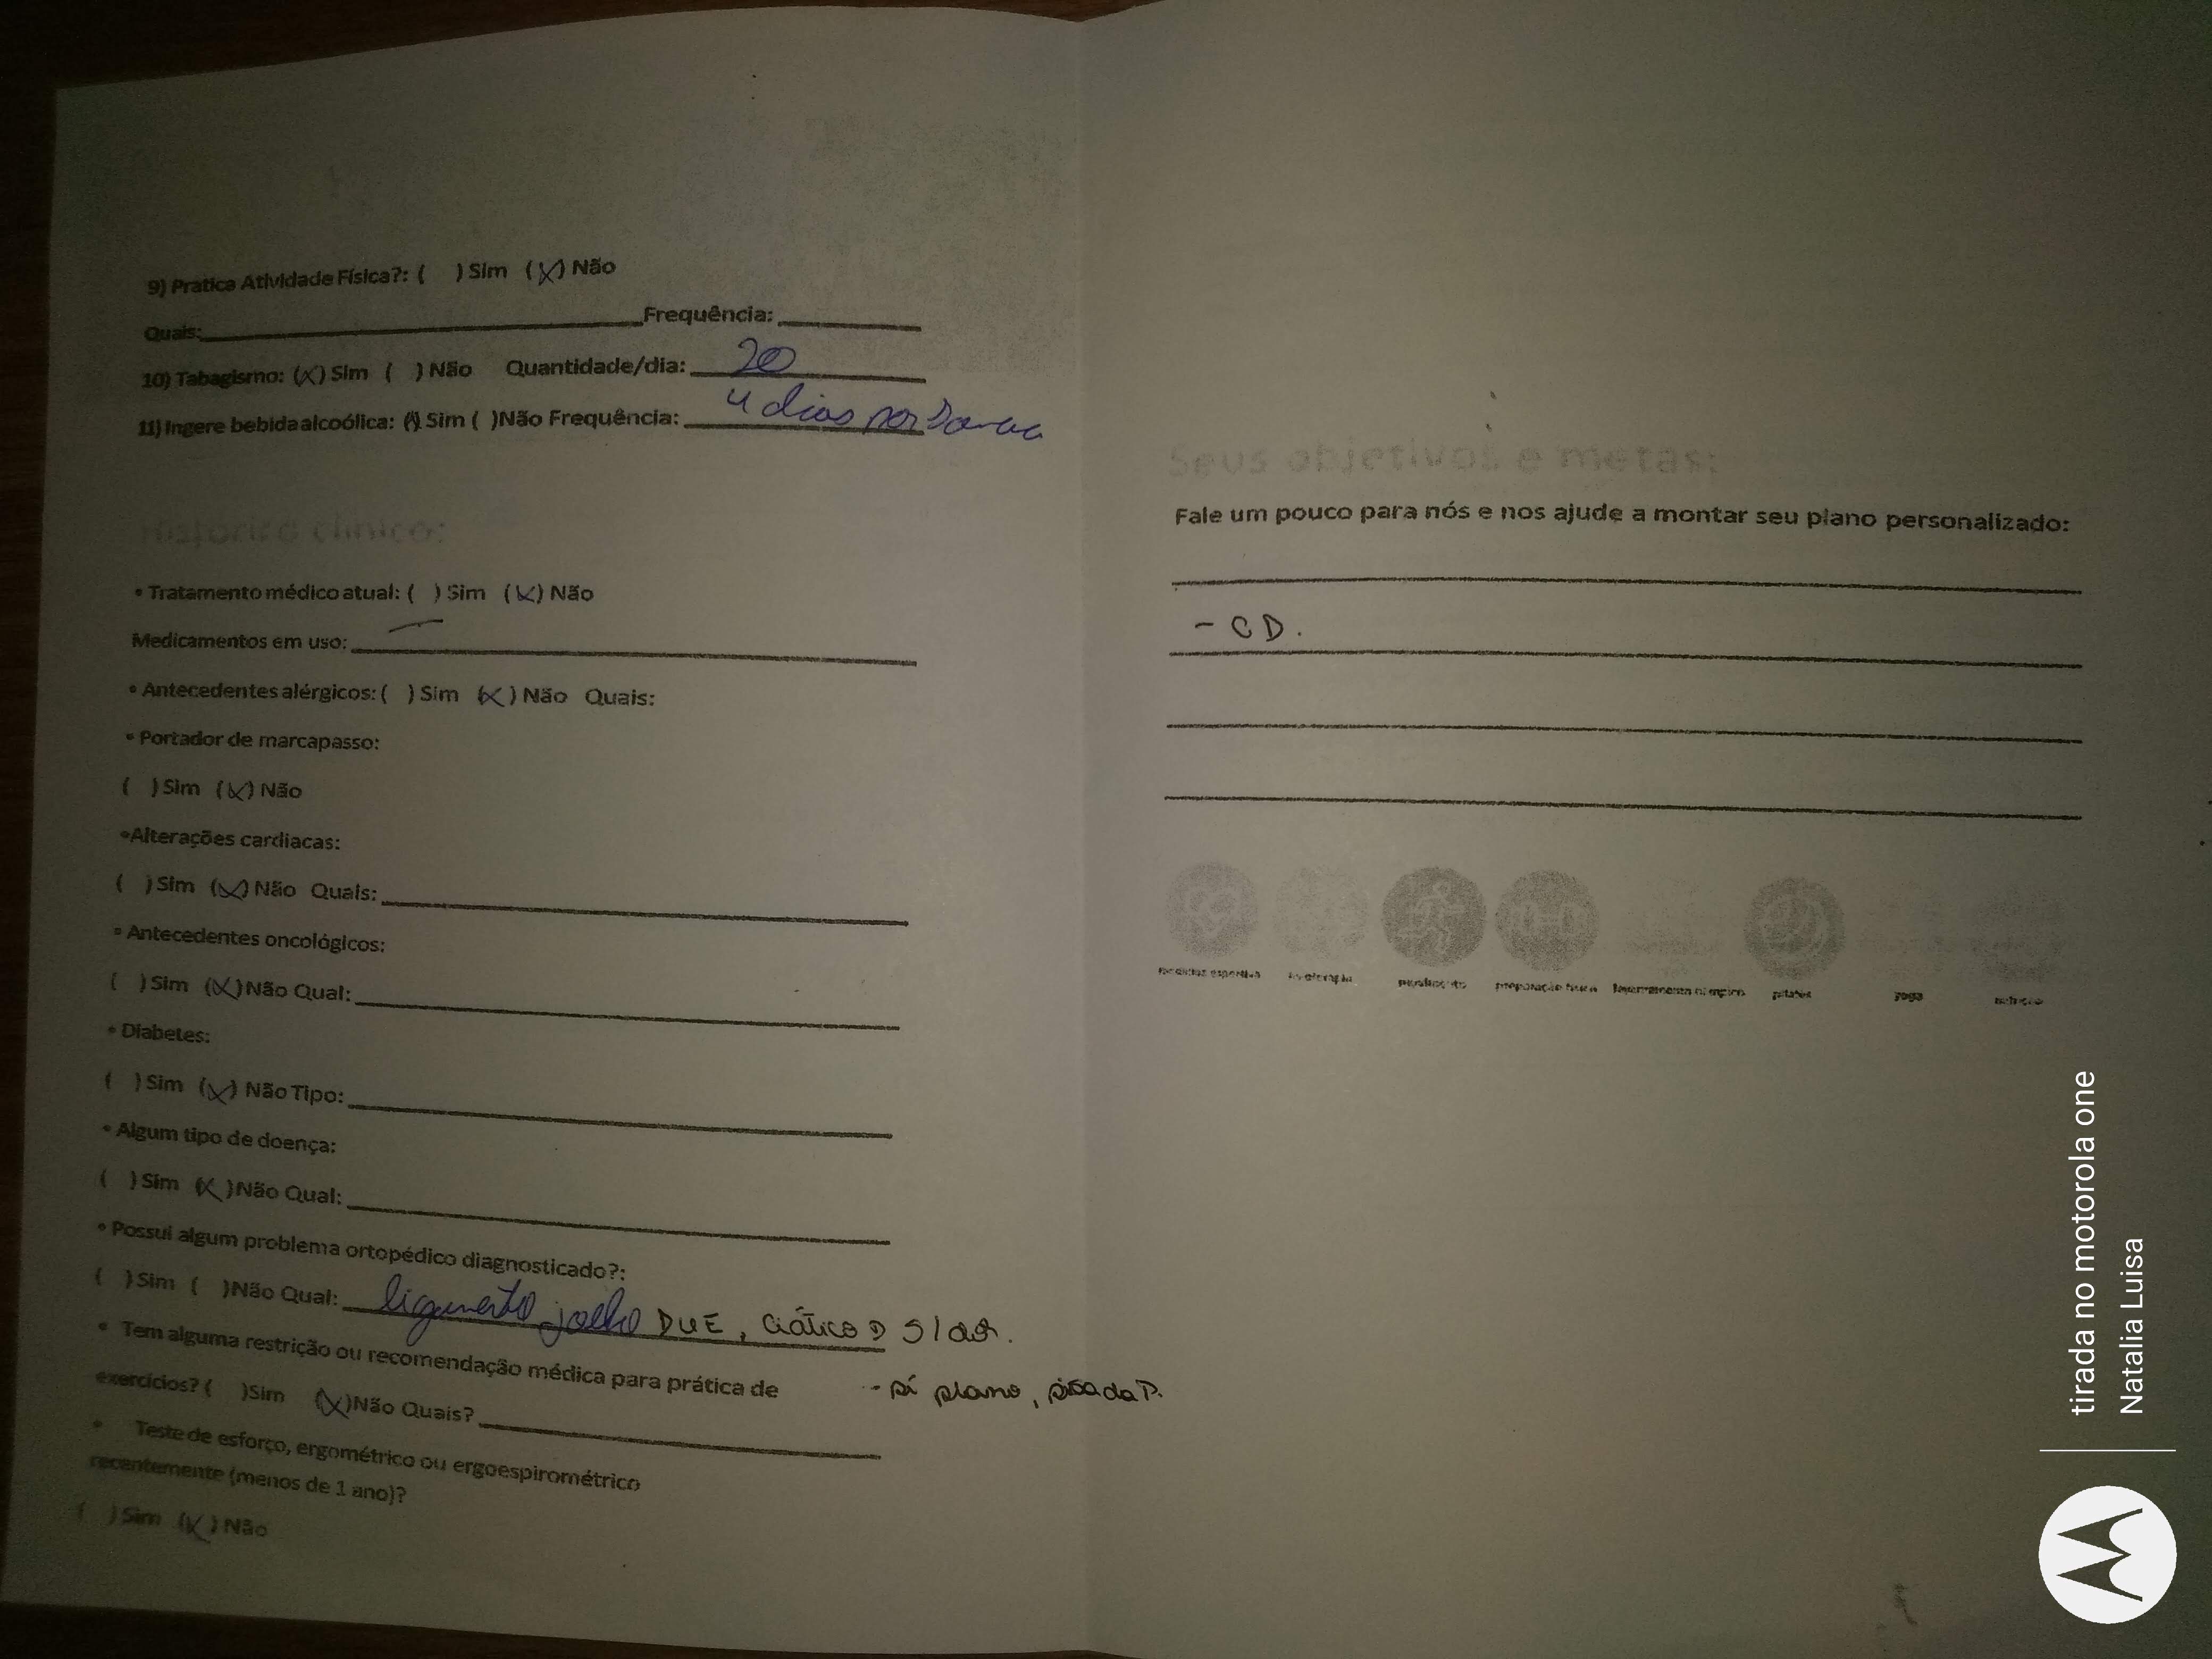 9) Pratica Atividade Física?: ( ) Sim (X) Não
Quais: Frequência:
10) Tabagismo: (X) Sim ( ) Não Quantidade/dia: 20
11) Ingere bebida alcoólica: (X) Sim ( )Não Frequência: 4 dias por
• Tratamento médico atual: ( ) Sim (X) Não
Medicamentos em uso: —
• Antecedentes alérgicos: ( ) Sim (X) Não Quais:
• Portador de marcapasso:
( ) Sim (X) Não
• Alterações cardíacas:
( ) Sim (X) Não Quais:
• Antecedentes oncológicos:
( ) Sim (X) Não Qual:
• Diabetes:
( ) Sim (X) Não Tipo:
• Algum tipo de doença:
( ) Sim (X) Não Qual:
• Possui algum problema ortopédico diagnosticado?:
( ) Sim ( ) Não Qual: ligamento joelho D e E, ciático D
• Tem alguma restrição ou recomendação médica para prática de
exercícios? ( )Sim (X)Não Quais?
- pé plano, pisada P.
• Teste de esforço, ergométrico ou ergoespirométrico
recentemente (menos de 1 ano)?
( ) Sim (X) Não
Seus objetivos e metas:
Fale um pouco para nós e nos ajude a montar seu plano personalizado:
- CD.
pilates
yoga
tirada no motorola one
Natalia Luisa